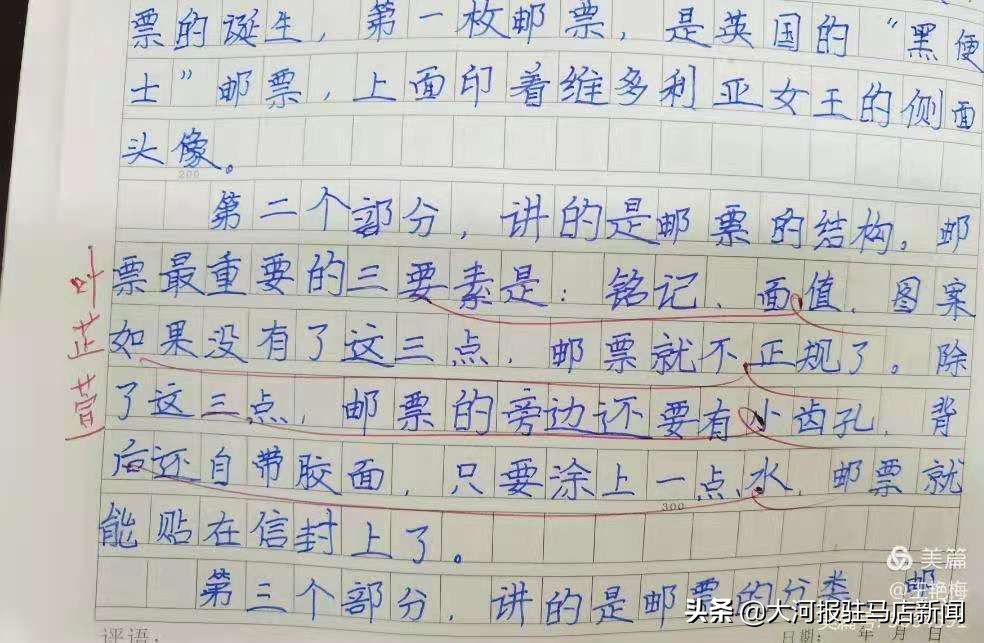 票的诞生，第一枚邮票，是英国的“黑便
士”邮票，上面印着维多利亚女王的侧面
头像。
200
第二个部分，讲的是邮票的结构。邮
票最重要的三要素是：铭记、面值、图案
如果没有了这三点，邮票就不正规了。除
了这三点，邮票的旁边还要有小齿孔，背
后还自带胶面，只要涂上一点水，邮票就
300
能贴在信封上了。
第三个部分，讲的是邮票的分类，邮
叶芷萱
评语：
日期： 年 月 日
美篇
@王艳梅
头条 @大河报驻马店新闻